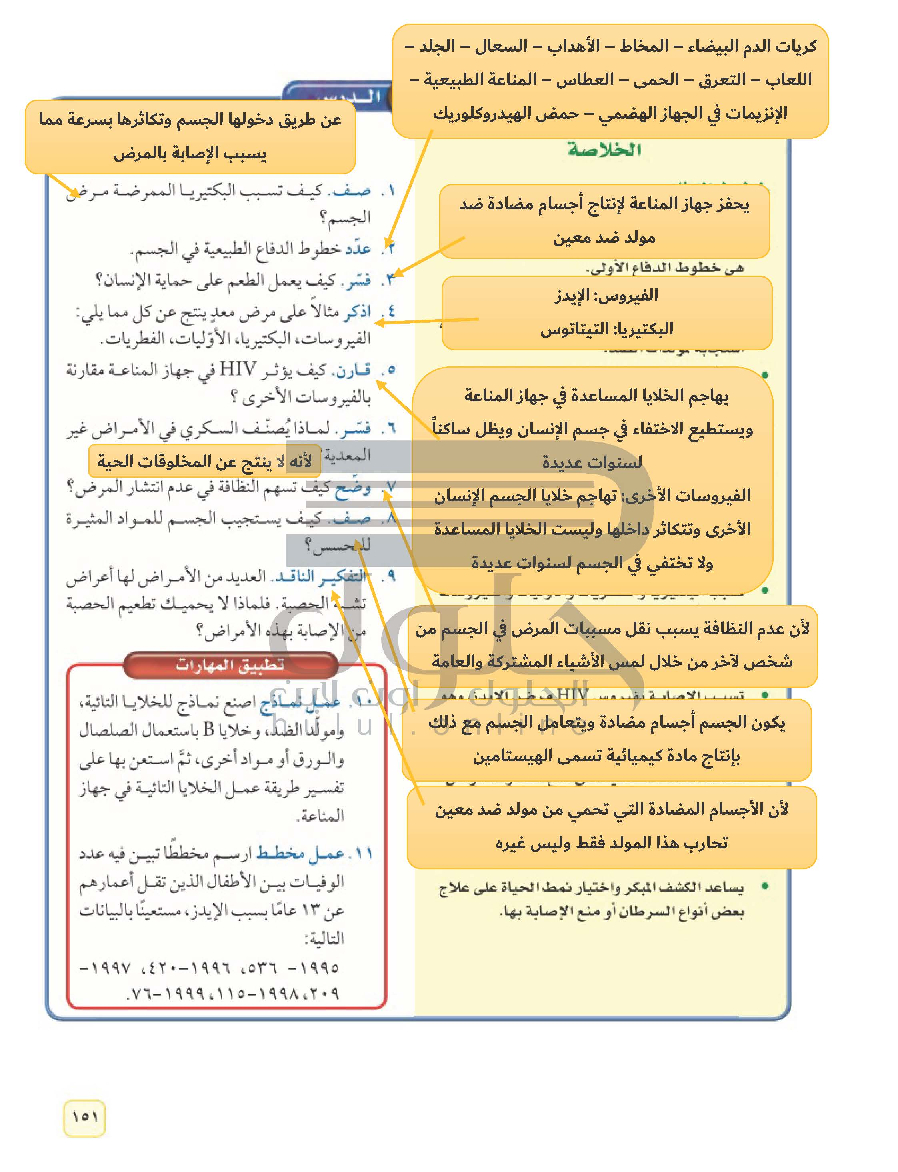 كريات الدم البيضاء – المخاط – الأهداب – السعال – الجلد –
اللعاب – التعرق – الحمى – العطاس – المناعة الطبيعية –
الإنزيمات في الجهاز الهضمي – حمض الهيدروكلوريك
الدرس
عن طريق دخولها الجسم وتكاثرها بسرعة مما
يسبب الإصابة بالمرض
الخلاصة
يحفز جهاز المناعة لإنتاج أجسام مضادة ضد
مولد ضد معين
هي خطوط الدفاع الأولى.
الفيروس: الإيدز
البكتيريا: التيتاتوس
يهاجم الخلايا المساعدة في جهاز المناعة
ويستطيع الاختفاء في جسم الإنسان ويظل ساكناً
لسنوات عديدة
الفيروسات الأخرى: تهاجم خلايا الجسم الإنسان
الأخرى وتتكاثر داخلها وليست الخلايا المساعدة
ولا تختفي في الجسم لسنوات عديدة
لأن عدم النظافة يسبب نقل مسببات المرض في الجسم من
شخص لآخر من خلال لمس الأشياء المشتركة والعامة
يكون الجسم أجسام مضادة ويتعامل الجسم مع ذلك
بإنتاج مادة كيميائية تسمى الهيستامين
لأن الأجسام المضادة التي تحمي من مولد ضد معين
تحارب هذا المولد فقط وليس غيره
• يساعد الكشف المبكر واختيار نمط الحياة على علاج
بعض أنواع السرطان أو منع الإصابة بها.
١. صف. كيف تسبب البكتيريا الممرضة مرض
الجسم؟
٢. عدّد خطوط الدفاع الطبيعية في الجسم.
٣. فسّر. كيف يعمل الطعم على حماية الإنسان؟
٤. اذكر مثالاً على مرض معدٍ ينتج عن كل مما يلي:
الفيروسات، البكتيريا، الأوّليات، الفطريات.
٥. قارن. كيف يؤثر HIV في جهاز المناعة مقارنة
بالفيروسات الأخرى ؟
٦. فسّر. لماذا يُصنّف السكري في الأمراض غير
المعدية
لأنه لا ينتج عن المخلوقات الحية
٧. وضّح كيف تسهم النظافة في عدم انتشار المرض؟
٨. صف. كيف يستجيب الجسم للمواد المثيرة
للتحسس؟
٩. التفكير الناقد. العديد من الأمراض لها أعراض
تشبه الحصبة. فلماذا لا يحميك تطعيم الحصبة
من الإصابة بهذه الأمراض؟
تطبيق المهارات
١٠. عمل نماذج اصنع نماذج للخلايا التائية،
ومولِّد الضد، وخلايا B باستعمال الصلصال
والورق أو مواد أخرى، ثمَّ استعن بها على
تفسير طريقة عمل الخلايا التائية في جهاز
المناعة.
١١. عمل مخطط ارسم مخططًا تبين فيه عدد
الوفيات بين الأطفال الذين تقل أعمارهم
عن ١٣ عامًا بسبب الإيدز، مستعينًا بالبيانات
التالية:
١٩٩٥– ٥٣٦، ١٩٩٦–٤٢٠، ١٩٩٧–
٢٠٩، ١٩٩٨–١١٥، ١٩٩٩–٧٦.
حلول
الحلول أون لاين
hulul.online
١٥١